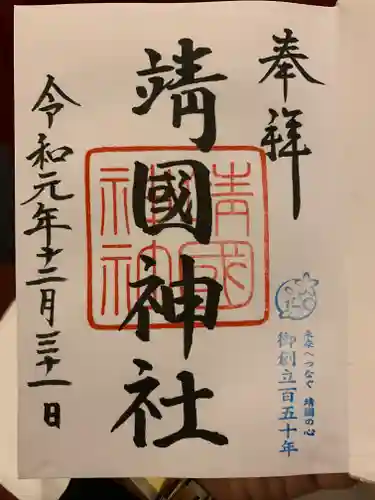 奉拝
未来へつなぐ 靖國の心
御創立百五十年
靖國神社
靖國神社
令和元年十二月三十一日